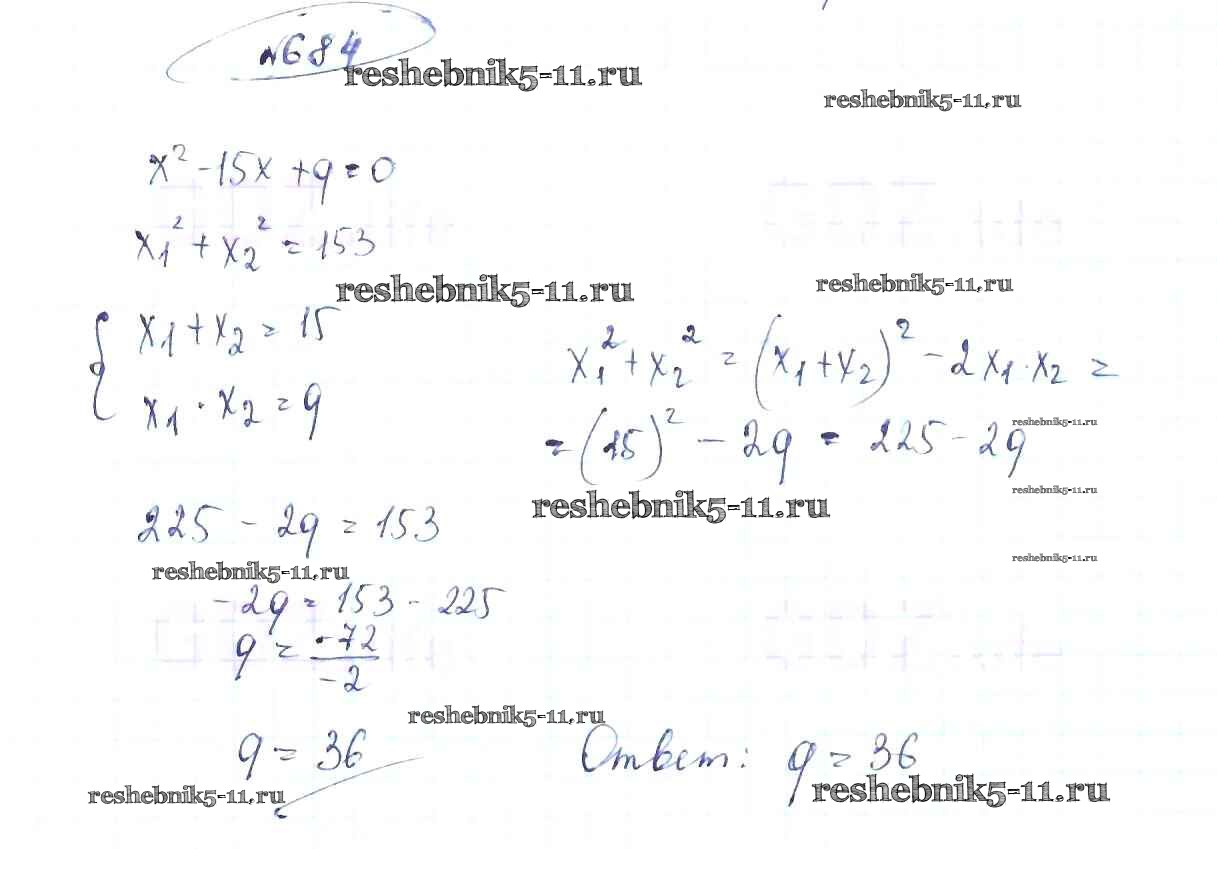 №684
reshebnik5-11.ru
reshebnik5-11.ru
x² - 15x + q = 0
x₁² + x₂² = 153
reshebnik5-11.ru
reshebnik5-11.ru
{ x₁ + x₂ = 15
x₁ · x₂ = q
x₁² + x₂² = (x₁ + x₂)² - 2x₁·x₂ =
reshebnik5-11.ru
= (15)² - 2q = 225 - 2q
reshebnik5-11.ru
reshebnik5-11.ru
225 - 2q = 153
reshebnik5-11.ru
reshebnik5-11.ru
-2q = 153 - 225
q = -72/-2
reshebnik5-11.ru
q = 36
Ответ: q = 36
reshebnik5-11.ru
reshebnik5-11.ru